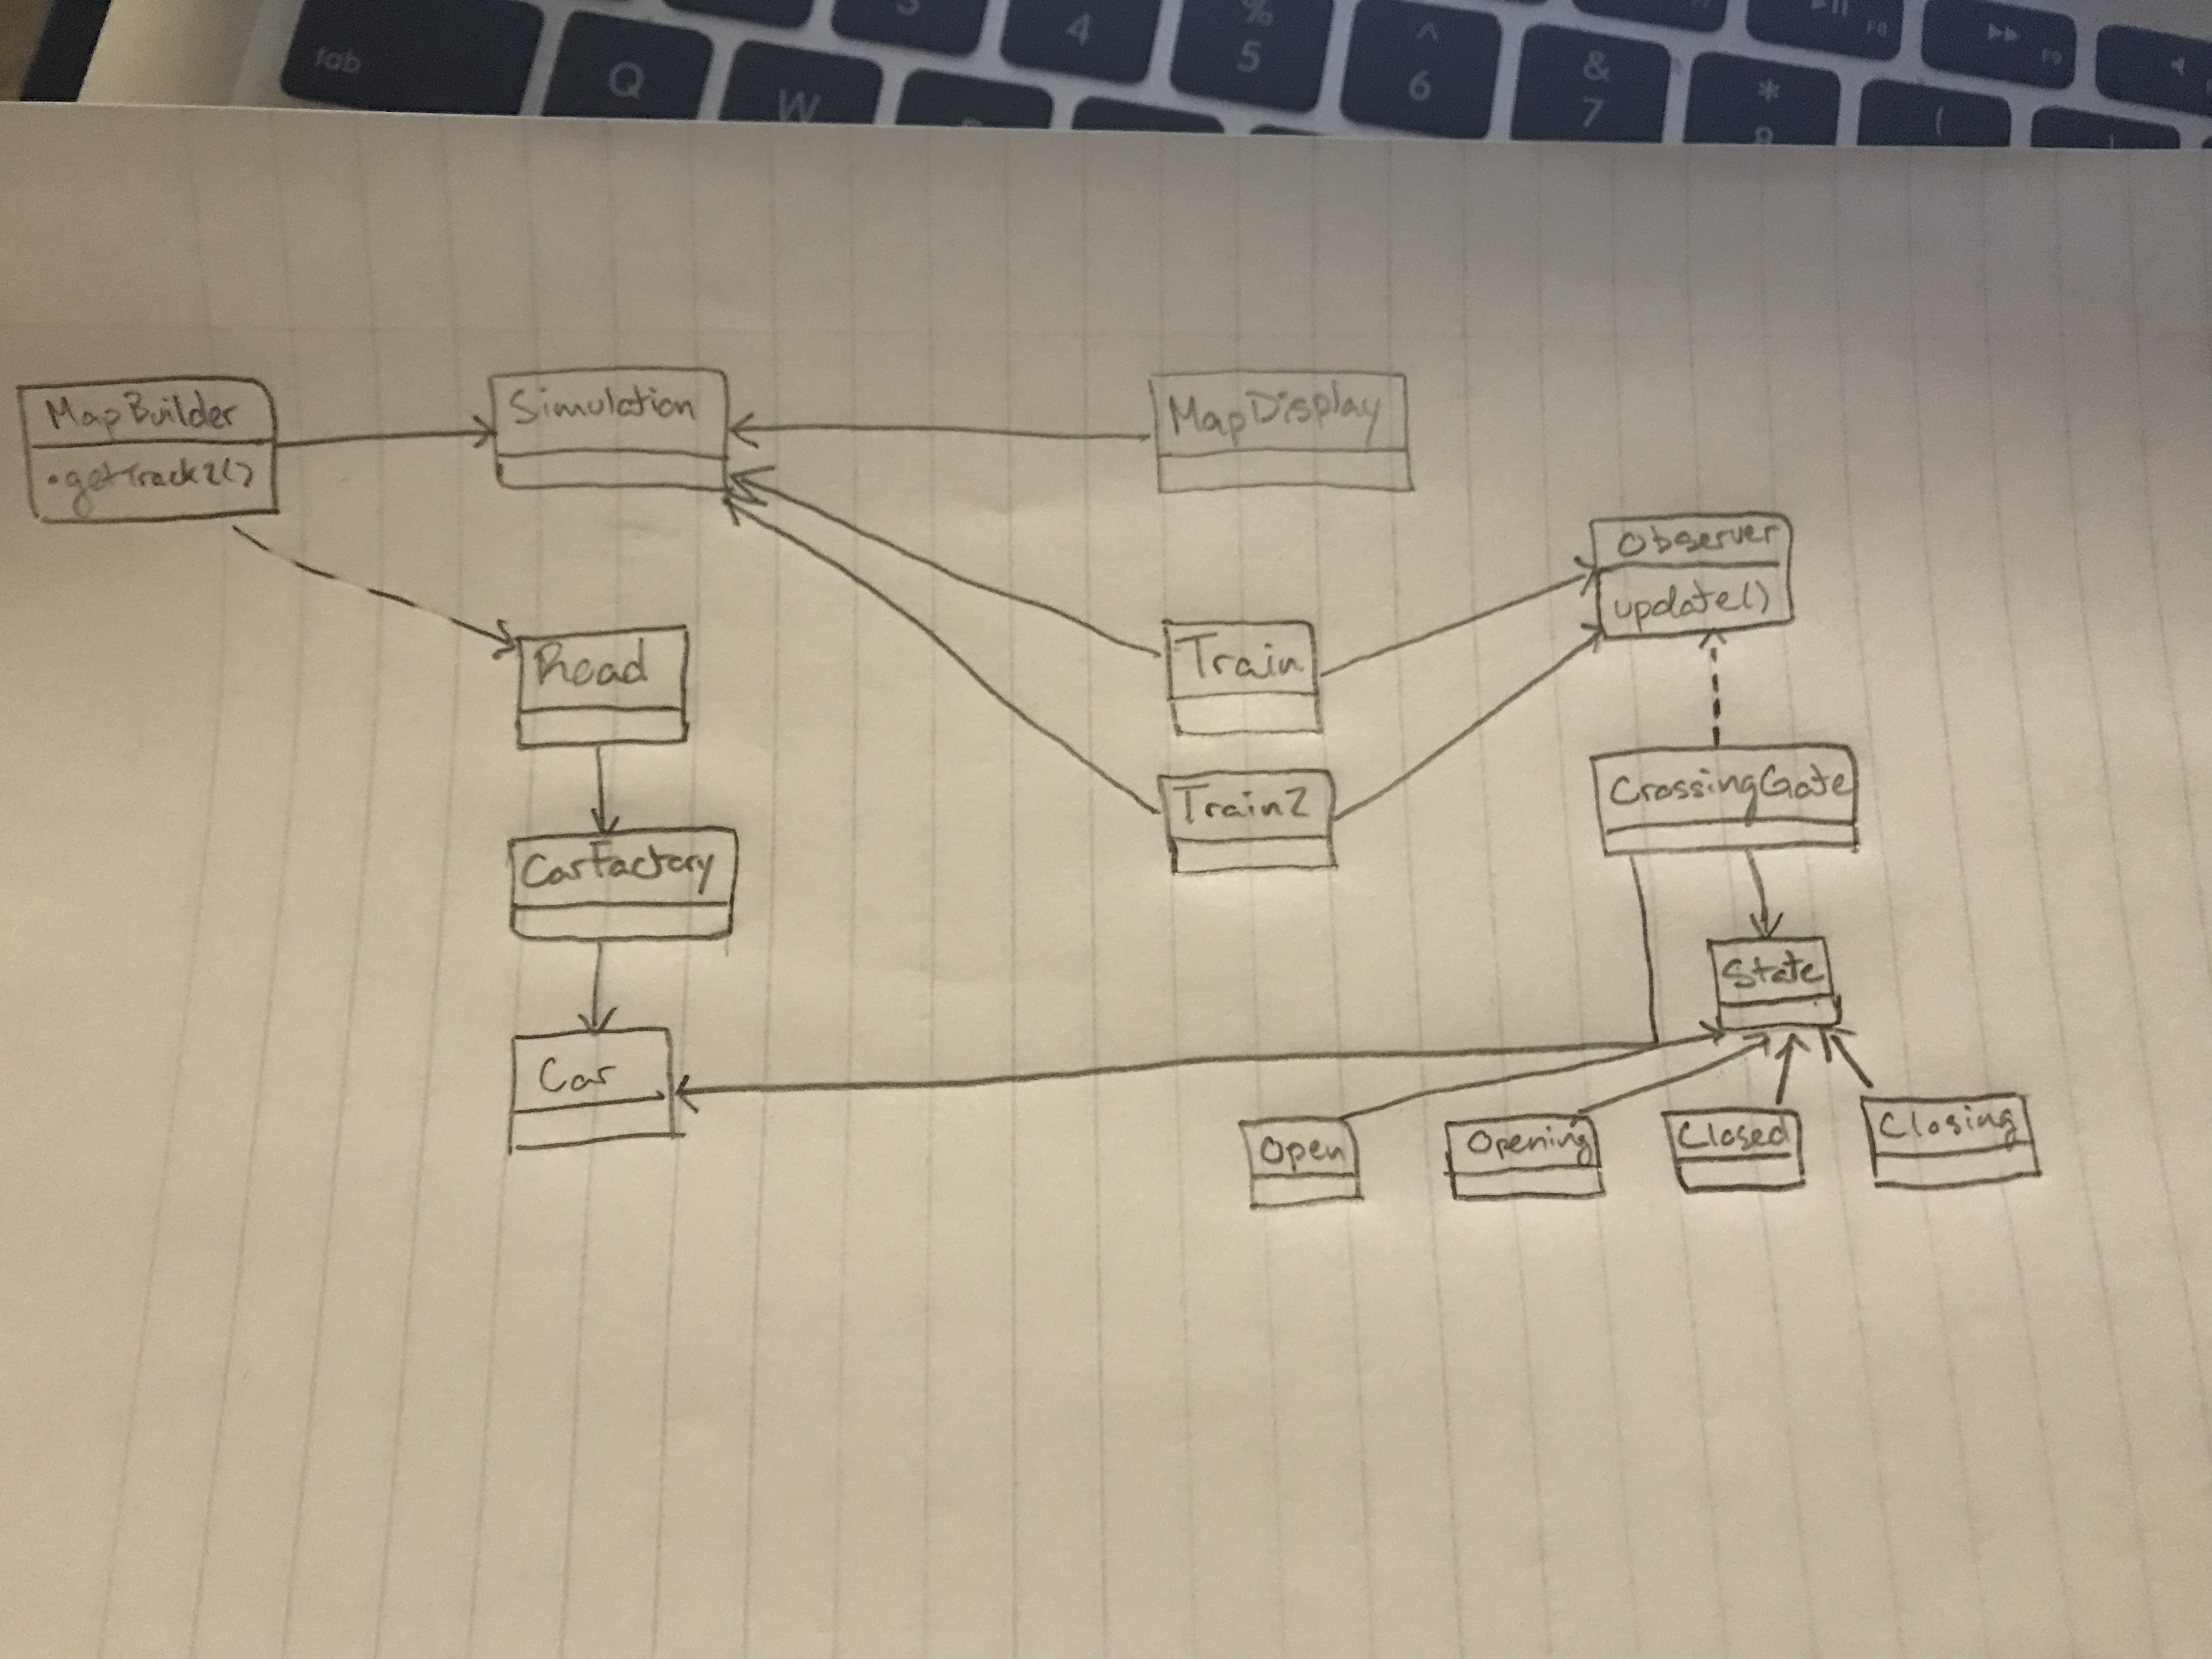 tab
Q
W
3
4
%
5
^
6
&
7
*
8
(
F8
F9
MapBuilder
•getTrack2()
Simulation
MapDisplay
Observer
update()
Road
Train
Train2
CrossingGate
CarFactory
State
Car
Open
Opening
Closed
Closing